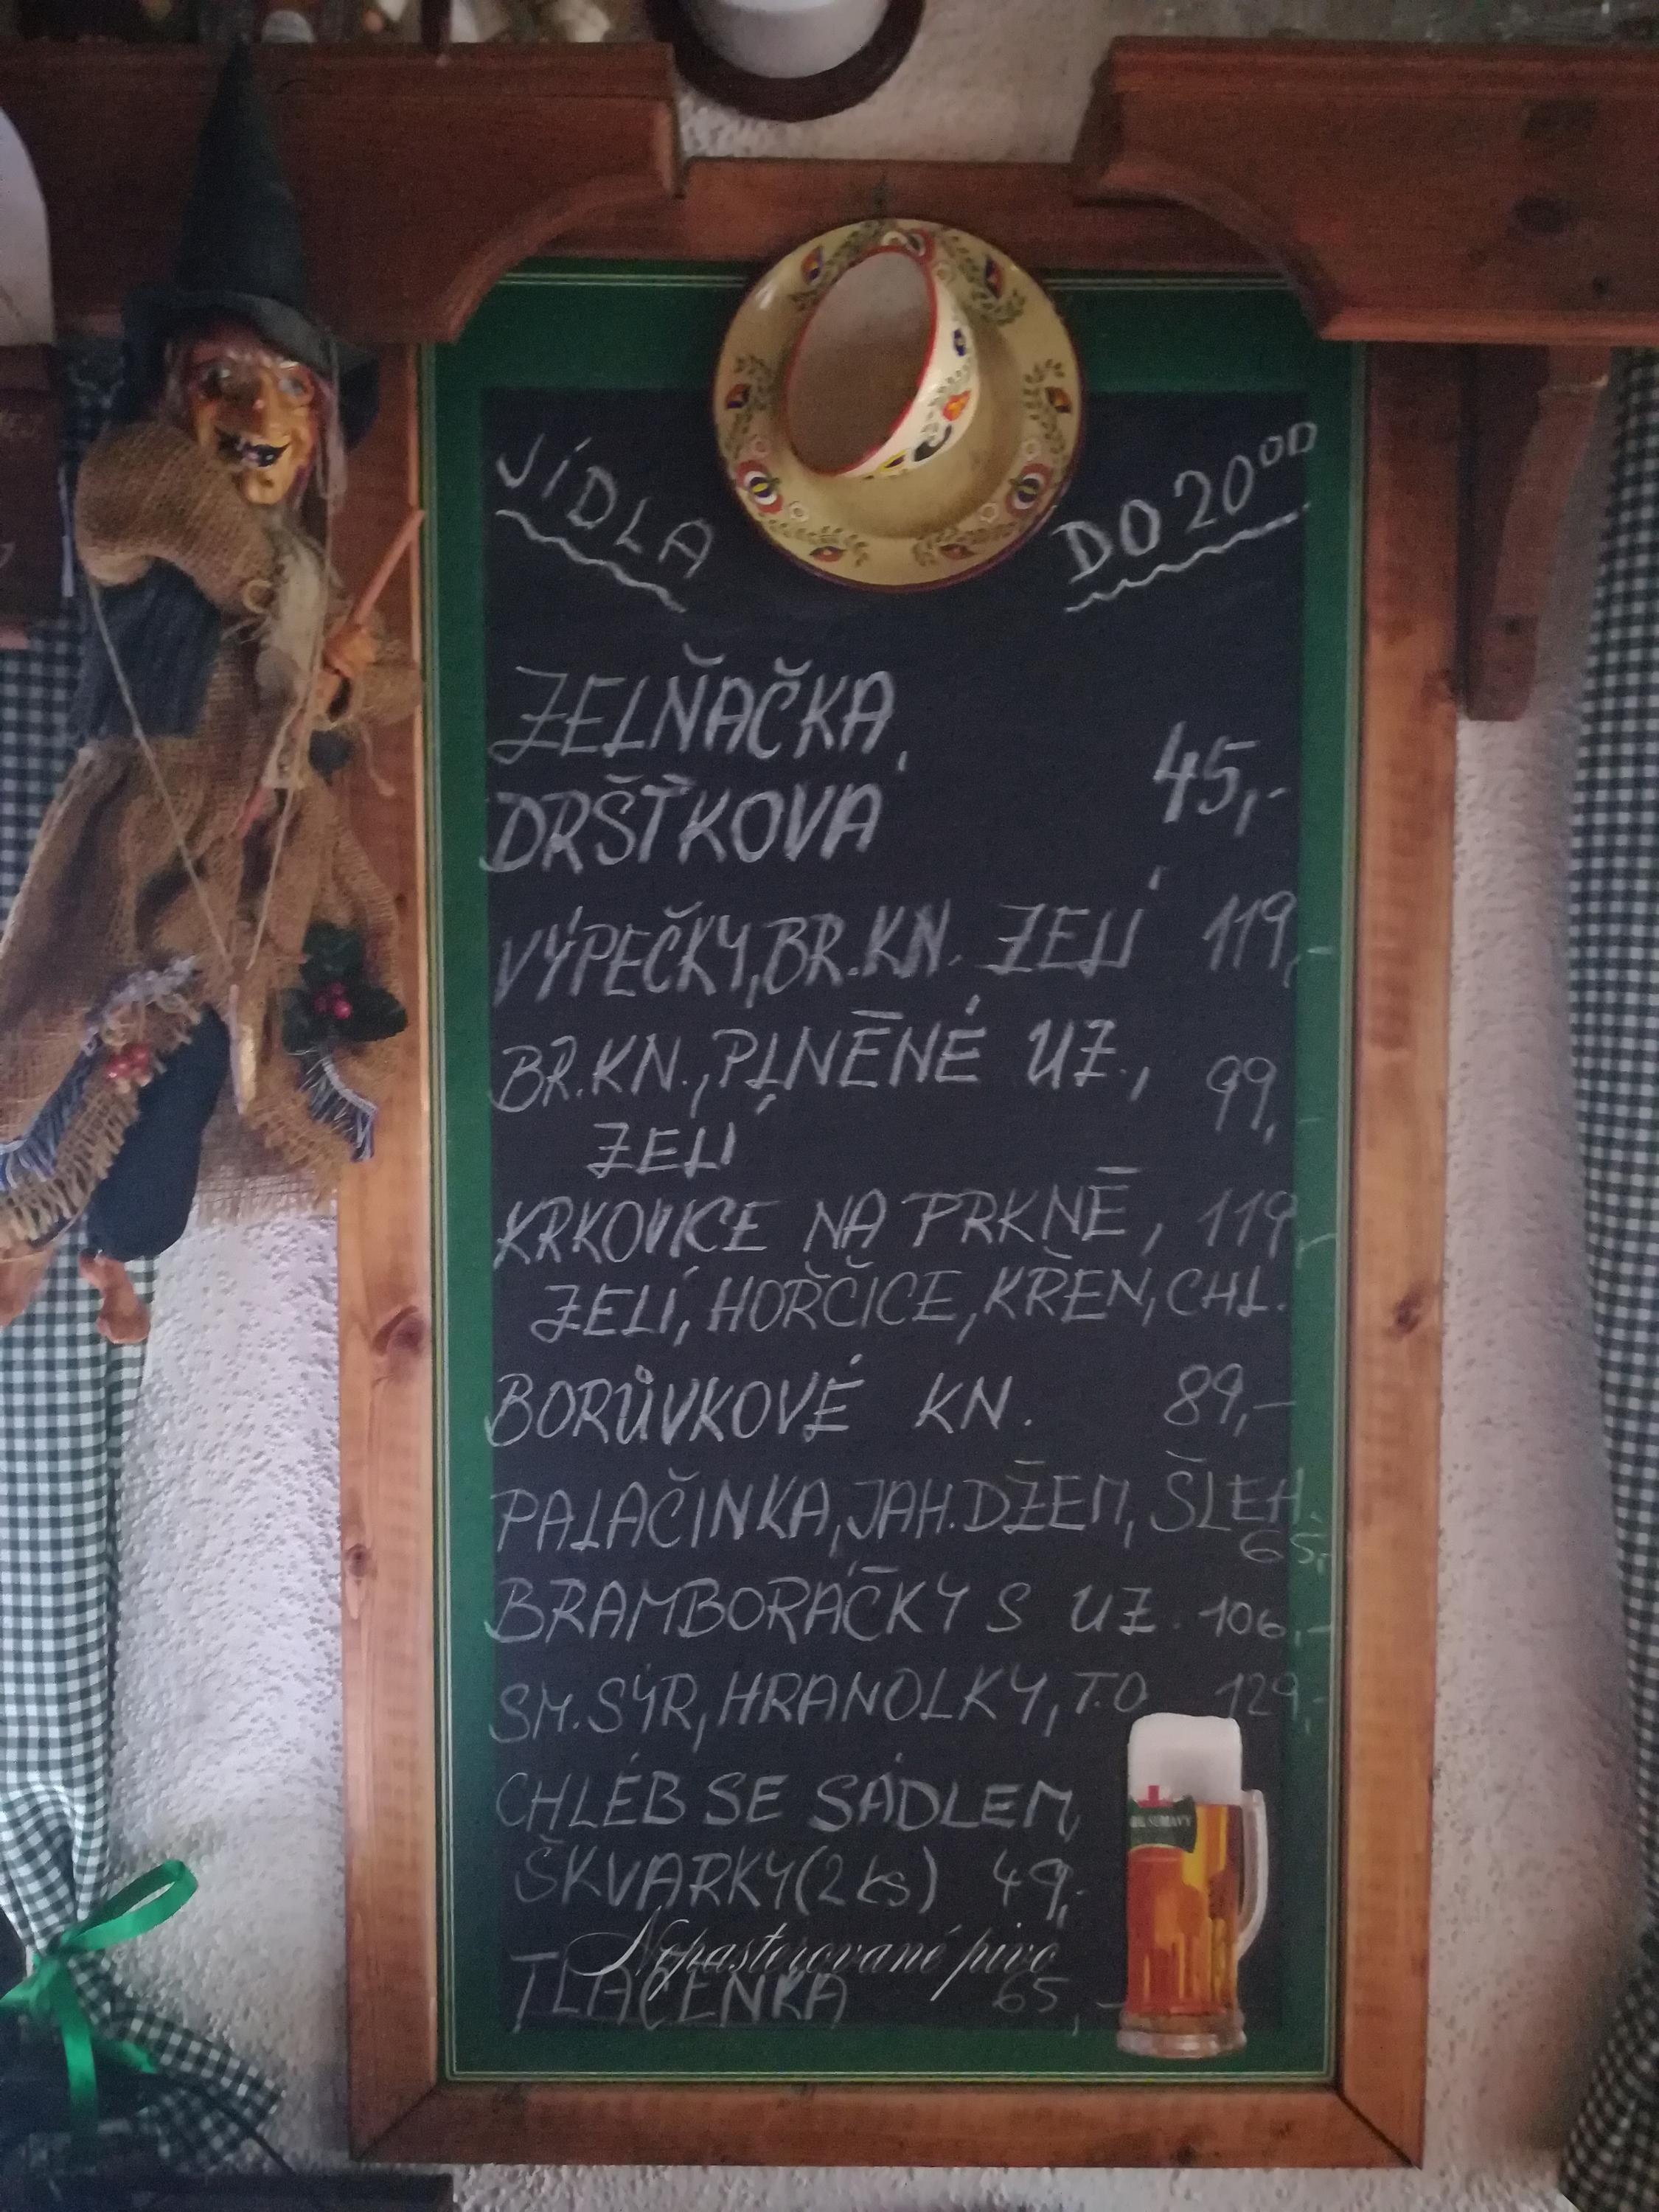 JÍDLA DO 20⁰⁰
ZELŇAČKA,
DRŠŤKOVÁ 45,-
VÝPEČKY, BR. KN. ZELÍ 119,-
BR. KN., PLNĚNÉ UZ., 99,-
ZELÍ
KRKOVICE NA PRKNĚ, 119,-
ZELÍ, HOŘČICE, KŘEN, CHL.
BORŮVKOVÉ KN. 89,-
PALAČINKA, JAH. DŽEM, ŠLEH.
65,-
BRAMBORÁČKY S UZ. 106,-
SM. SÝR, HRANOLKY, T.O. 129,-
CHLÉB SE SÁDLEM,
ŠKVARKY (2ks) 49,-
Nepasterované pivo
TLAČENKA 65,-